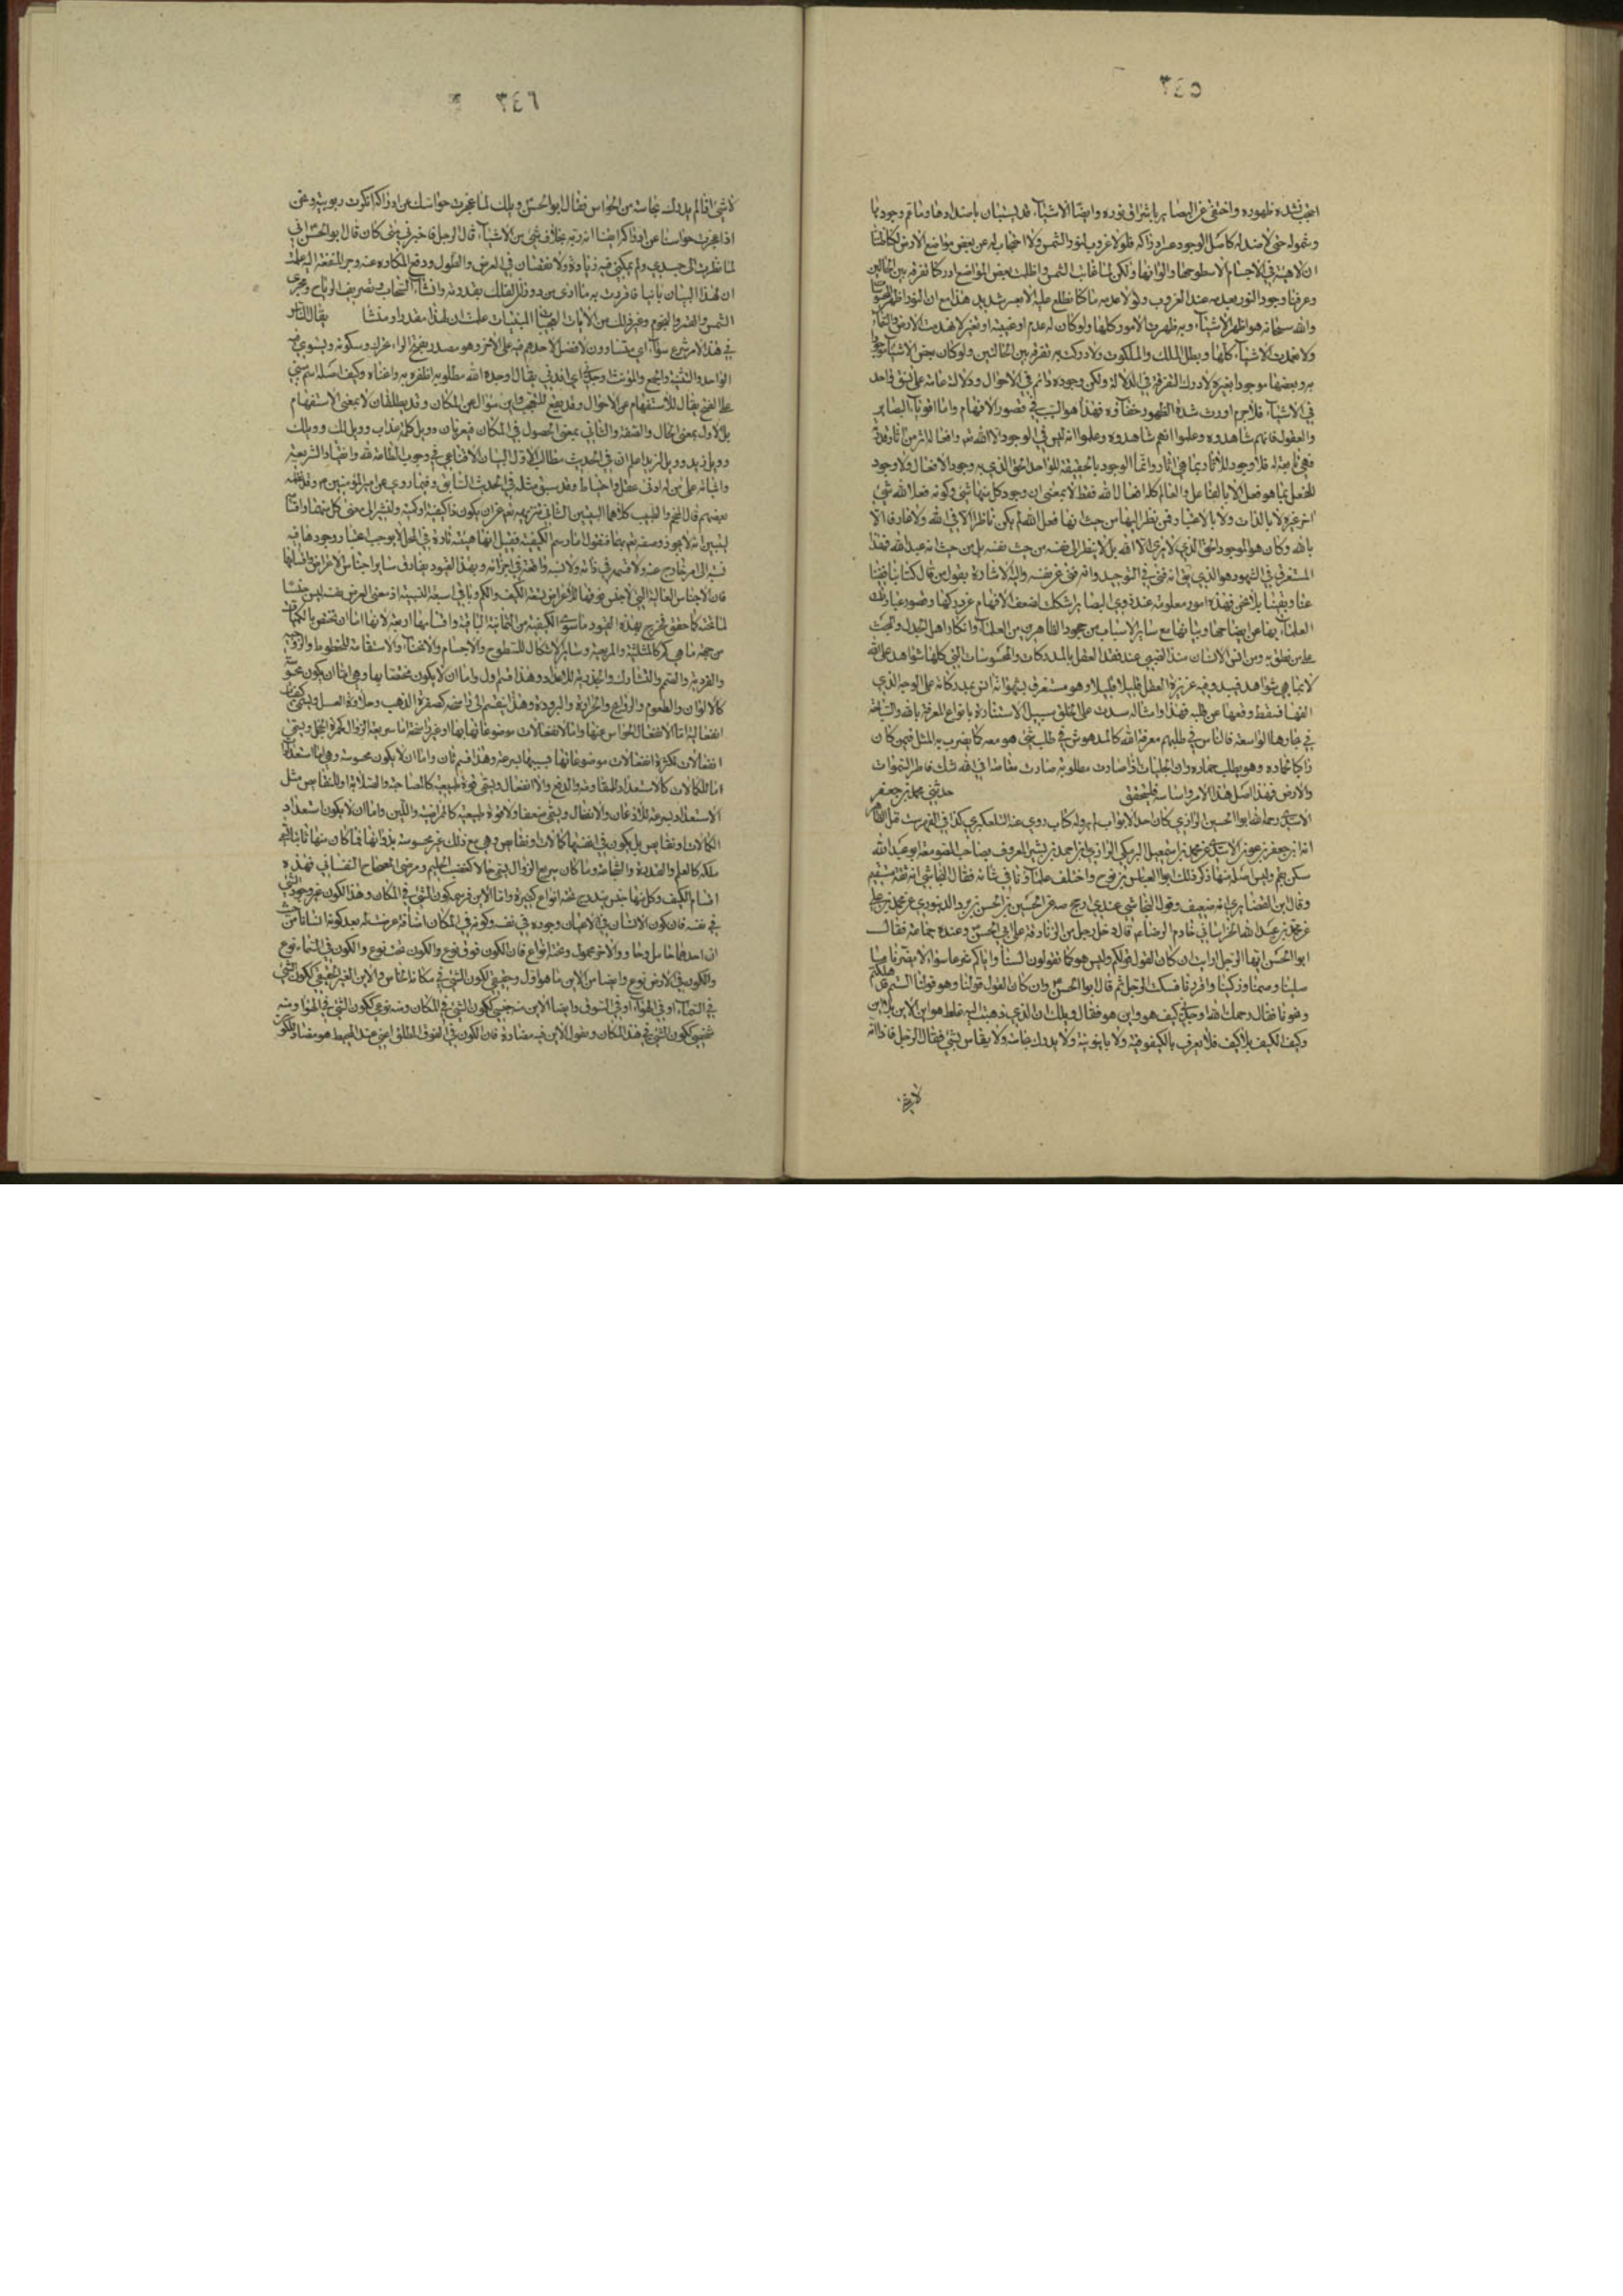 ٣٤٥
احتجب لشدة ظهوره واختفى عن البصائر باشراق نوره وايضا الاشياء قد تستبان باضدادها وما تم وجوده
وشموله حتى لا ضد له كاصل الوجود عسر ادراكه فلولا غروب لنور الشمس ولا احتجاب له عن بعض مواضع الارض لكنا نظن
ان لا هيئة في الاجسام الا سطوحها والوانها ولكن لما غابت الشمس واظلمت بعض المواضع ادركنا تفرقة بين الحالين
وعرفنا وجود النور بعدمه عند الغروب ولولا عدمه ما كنا نطلع عليه الا بعسر شديد هذا مع ان النور اظهر المحسوسات
والله سبحانه هو اظهر الاشياء وبه ظهرت الامور كلها ولو كان له عدم او غيبة او تغير لانهدمت الارض والسماء
ولانعدمت الاشياء كلها وبطل الملك والملكوت ولادركت به تفرقة بين الحالتين ولو كان بعض الاشياء موجودا
به وبعضها موجودا بغيره لادرك التفرقة في الدلالة ولكن وجوده دائم في الاحوال ودلالته عامة على نسق واحد
في الاشياء فلا جرم اورث شدة الظهور خفاؤه فهذا هو السبب في قصور الافهام واما اقوياء البصائر
والعقول فانهم شاهدوه وعلموا انهم شاهدوه وعلموا انه ليس في الوجود الا الله وافعاله اثر من آثار قدرته
فهي تابعة له فلا وجود للآثار بما هي آثار وانما الوجود بالحقيقة للواحد الحق الذي به وجود الافعال ولا وجود
للفعل بما هو فعل الا بالفاعل والعالم كله افعال الله فقط لا بمعنى ان وجود كل منها شئ وكونه فعلا لله شئ
آخر غيره لا بالذات ولا بالاعتبار فمن نظر اليها من حيث انها فعل الله لم يكن ناظرا الا في الله ولا عارفا الا
بالله وكان هو الموحد الحق الذي لا يرى الا الله بل لا ينظر الى نفسه من حيث نفسه بل من حيث انه عبد الله فهذا
المستغرق في الشهود هو الذي يق انه فنى في التوحيد وانه فنى عن نفسه واليه الاشارة بقول من قال كنا بنا ففنينا
عنا وبقينا بلا نحن فهذه امور معلومة عند ذوي البصائر اشكلت لضعف الافهام عن دركها وقصور عبارة
العلماء بها عن ايضاحها وبيانها مع ساير الاسباب من جمود الظاهريين من العلماء وانكار اهل الجدل والبحث
على من نطق به ومن انس الانسان منذ الصبى عند فقد العقل بالمدركات والمحسوسات التي كلها شواهد على الله
لا بما هي شواهد فيبدو فيه غريزة العقل قليلا قليلا وهو مستغرق بشهواته انس بمدركاته على الوجه الذي
الفها فسقط وقعها عن قلبه فهذا وامثاله سدت على الخلق سبيل الاستنارة بانواع المعرفة بالله والسباحة
في بحارها الواسعة فالناس في طلبهم معرفة الله كالمدهوش في طلب شئ هو معه كما يضرب به المثل فيمن كان
راكبا لحماره وهو يطلب حماره وان الجليات اذا صارت مطلوبة صارت معتاصا في الله شك فاطر السموات
والارض فهذا اصل هذا الامر واساسه فليتحقق حدثني محمد بن جعفر
الاسدي رحمه الله ابو الحسين الرازي كان احد الابواب وله كتاب روى عنه التلعكبري كذا في الفهرست قيل الظاهر
انه ابن جعفر بن عون الاسدي عن محمد بن اسمعيل البرمكي الرازي ابن احمد بن بشير المعروف بصاحب الصومعة ابو عبد الله
سكن بقم وليس اصله منها ذكر ذلك ابو العباس بن نوح واختلف علماؤنا في شأنه فقال النجاشي انه ثقة مستقيم
وقال ابن الغضايري انه ضعيف وقول النجاشي عندي ارجح صه عن الحسين بن الحسن بن برد الدينوري عن محمد بن علي
عن محمد بن عبد الله الخراساني خادم الرضا قال دخل رجل من الزنادقة على ابي الحسن وعنده جماعة فقال
ابو الحسن ايها الرجل ارايت ان كان القول قولكم وليس هو كما تقولون السنا واياكم شرعا سواء لا يضرنا ما
صلينا وصمنا وزكينا واقررنا فسكت الرجل ثم قال ابو الحسن وان كان القول قولنا وهو قولنا الستم قد هلكتم
ونجونا فقال رحمك الله اوجدني كيف هو واين هو فقال ويلك ان الذي ذهبت اليه غلط هو اين الاين بلا اين
وكيف الكيف بلا كيف فلا يعرف بالكيفوفية ولا باينونية ولا يدرك بحاسة ولا يقاس بشئ فقال الرجل فاذا انه
لا شئ
٣٤٦
لا شئ اذا لم يدرك بحاسة من الحواس فقال ابو الحسن ويلك لما عجزت حواسك عن ادراكه انكرت ربوبيته ونحن
اذا عجزت حواسنا عن ادراكه ايقنا انه ربنا بخلاف شئ من الاشياء قال الرجل فاخبرني متى كان قال ابو الحسن اني
لما نظرت الى جسدي ولم يمكني فيه زيادة ولا نقصان في العرض والطول ودفع المكاره عنه وجر المنفعة اليه علمت
ان لهذا البنيان بانيا فاقررت به مع ما ارى من دوران الفلك بقدرته وانشاء السحاب وتصريف الرياح ومجرى
الشمس والقمر والنجوم وغير ذلك من الآيات العجيبات المبينات علمت ان لهذا مقدرا ومنشئا يقال الناس
في هذا الامر شرع سواء اي متساوون لا فضل لاحدهم فيه على الآخر وهو مصدر بفتح الراء وسكونه ويستوي فيه
الواحد والتثنية والجمع والمؤنث اوجدني اي افدني يقال اوجده الله مطلوبه اظفره به واغناه وكيف اصله اسم مبني
على الفتح يقال للاستفهام عن الاحوال وقد يقع للتعجب واين سؤال عن المكان وقد يطلقان لا بمعنى الاستفهام
بل الاول بمعنى الحال والصفة والثاني بمعنى الحصول في المكان فيعربان وويل كلمة عذاب وويل لك وويلك
وويل زيد وويل لزيد اعلم ان في الحديث مطالب الاول البيان الاقناعي في وجوب الطاعة لله وانقياد الشريعة
واثباته على من له ادنى عقل واحتياط وقد سبق مثله في الحديث السابق وفيما روي عن امير المؤمنين
بعضهم قال المنجم والطبيب كلاهما البيتين الثاني تنزيهه تعم عن ان يكون ذا كيفية او كمية ولنشر الى معنى كل منهما
ليتبين انه لا يجوز وصفه تعم بهما فنقول اما رسم الكيفية فقيل انها هيئة قارة في المحل لا يوجب اعتبار وجودها فيه
نسبة الى امر خارج عنه ولا قسمة في ذاته ولا نسبة واقعة في اجزائه وبهذا القيود يفارق ساير اجناس الاعراض
فان الاجناس العالية التي لا جنس فوقها للأعراض تسعة الكيف والكم وباقي السبعة النسبية اذ معنى العرض بنفسه ليس جنسا
لما تحته كما حقق فخرج بهذه القيود ما سوى الكيفية من الثمانية الباقية واقسامها اربعة لانها اما ان تختص بالكميات
من جهة ما هي كم كالمثلثية والمربعية وساير الاشكال للسطوح والاجسام والانحناء والاستقامة للخطوط والزوجية
والفردية والصمم والتشارك والجذرية للاعداد وهذا قسم اول واما ان لا يكون مختصا بها وهي اما ان يكون محسوسة
كالالوان والطعوم والروائح والحرارة والبرودة وهذا ينقسم الى راسخة كصفرة الذهب وحلاوة العسل ويسمى كيفيات
انفعالية اما لانفعال الحواس عنها واما لانفعالات موضوعاتها بها او غير راسخة اما سريعة الزوال كحمرة الخجل ويسمى
انفعالات لكثرة انفعالات موضوعاتها بسببها بسرعة وهذا قسم ثان واما ان لا يكون محسوسة وهي اما استعدادات
اما للكمالات كالاستعداد للمقاومة والدفع والا انفعال ويسمى قوة طبيعية كالمصاحية والصلابة او للنقايص مثل
الاستعداد لسرعة الاذعان والانفعال ويسمى ضعفا ولا قوة طبيعية كالممراضية واللين واما ان لا يكون استعداد
الكمالات ونقايص بل يكون في انفسها كمالات او نقايص وهي مع ذلك غير محسوسة بذواتها فما كان منها ثابتا يسمى
ملكة كالعلم والقدرة والشجاعة وما كان سريع الزوال يسمى حالا كغضب الحليم ومرض المصحاح النفساني فهذه
اقسام الكيف وكل منها جنس يندرج تحته انواع كثيرة واما الاين فرسمه كون الشئ في المكان وهذا الكون غير وجود الشئ
في نفسه فان كون الانسان في الاعيان وجوده في نفسه وكونه في المكان اضافة عرضت له بعد كونه انسانا من حيث
ان احدهما حامل وحاو والآخر محمول وتحته انواع فان الكون فوق نوع والكون تحت نوع والكون في السماء نوع
والكون في الارض نوع وايضا من الاين ما هو اول وحقيقي ككون الشئ في مكانه الخاص والاين الغير الحقيقي ككون الشئ
في السماء او في الهواء او في السوق وايضا الاين منه جنسي ككون الشئ في المكان ومنه نوعي ككون الشئ في الهواء ومنه
شخصي ككون الشئ في هذا المكان ومقول الاين فيه مضادة فان الكون في الفوق المطلق اعني عند المحيط هو مضاد للكون